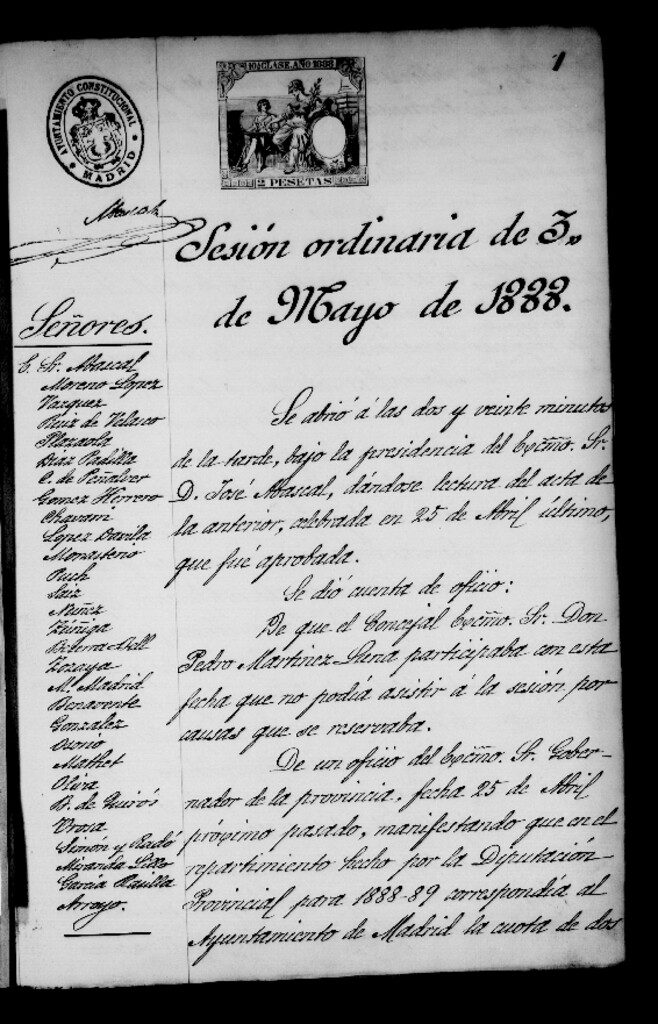 1
AYUNTAMIENTO CONSTITUCIONAL
MADRID
10ª CLASE. AÑO 1888
2 PESETAS
Abascal
Sesión ordinaria de 3
de Mayo de 1888.
Señores.
E. Sr. Abascal
Moreno Lopez
Vazquez
Ruiz de Velasco
Plazaola
Diaz Padilla
C. de Peñalver
Gomez Herrero
Chavarri
Lopez Davila
Monasterio
Puch
Saiz
Nuñez
Zúñiga
Becerra Bell
Zozaya
M. Madrid
Benavente
Gonzalez
Osorio
Mathet
Oliva
B. de Quirós
Orosa
Simón y Radó
Miranda Lillo
Garcia
Arroyo.
Se abrió á las dos y veinte minutos
de la tarde, bajo la presidencia del Excmo. Sr.
D. José Abascal, dándose lectura del acta de
la anterior, celebrada en 25 de Abril último,
que fué aprobada.
Se dió cuenta de oficio:
De que el Concejal Excmo. Sr. Don
Pedro Martinez Luna participaba con esta
fecha que no podia asistir á la sesión por
causas que se reservaba.
De un oficio del Excmo. Sr. Gober-
nador de la provincia, fecha 25 de Abril
próximo pasado, manifestando que en el
repartimiento hecho por la Diputación
Provincial para 1888-89 correspondia al
Ayuntamiento de Madrid la cuota de dos